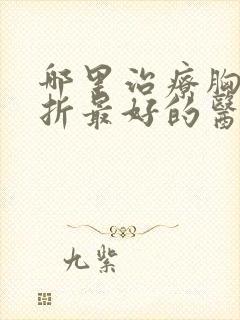 哪里治療胸
折最好的醫
九紫